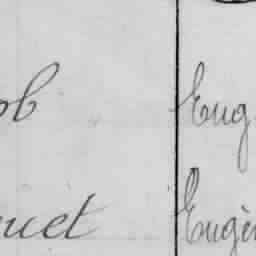 ob Eug
ucet Eugèn